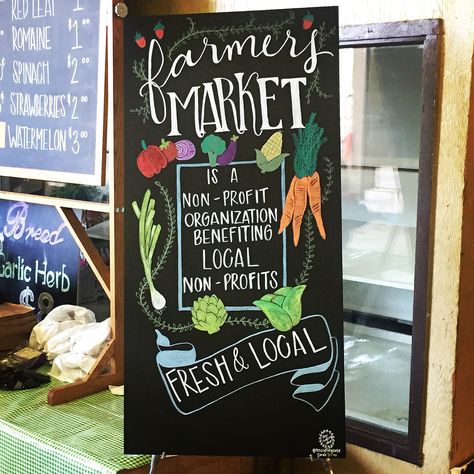 RED LEAF $1
ROMAINE $2
SPINACH $2
STRAWBERRIES $2
WATERMELON $3
Bread
Garlic Herb
$
farmers
MARKET
IS A
NON-PROFIT
ORGANIZATION
BENEFITING
LOCAL
NON-PROFITS
FRESH & LOCAL